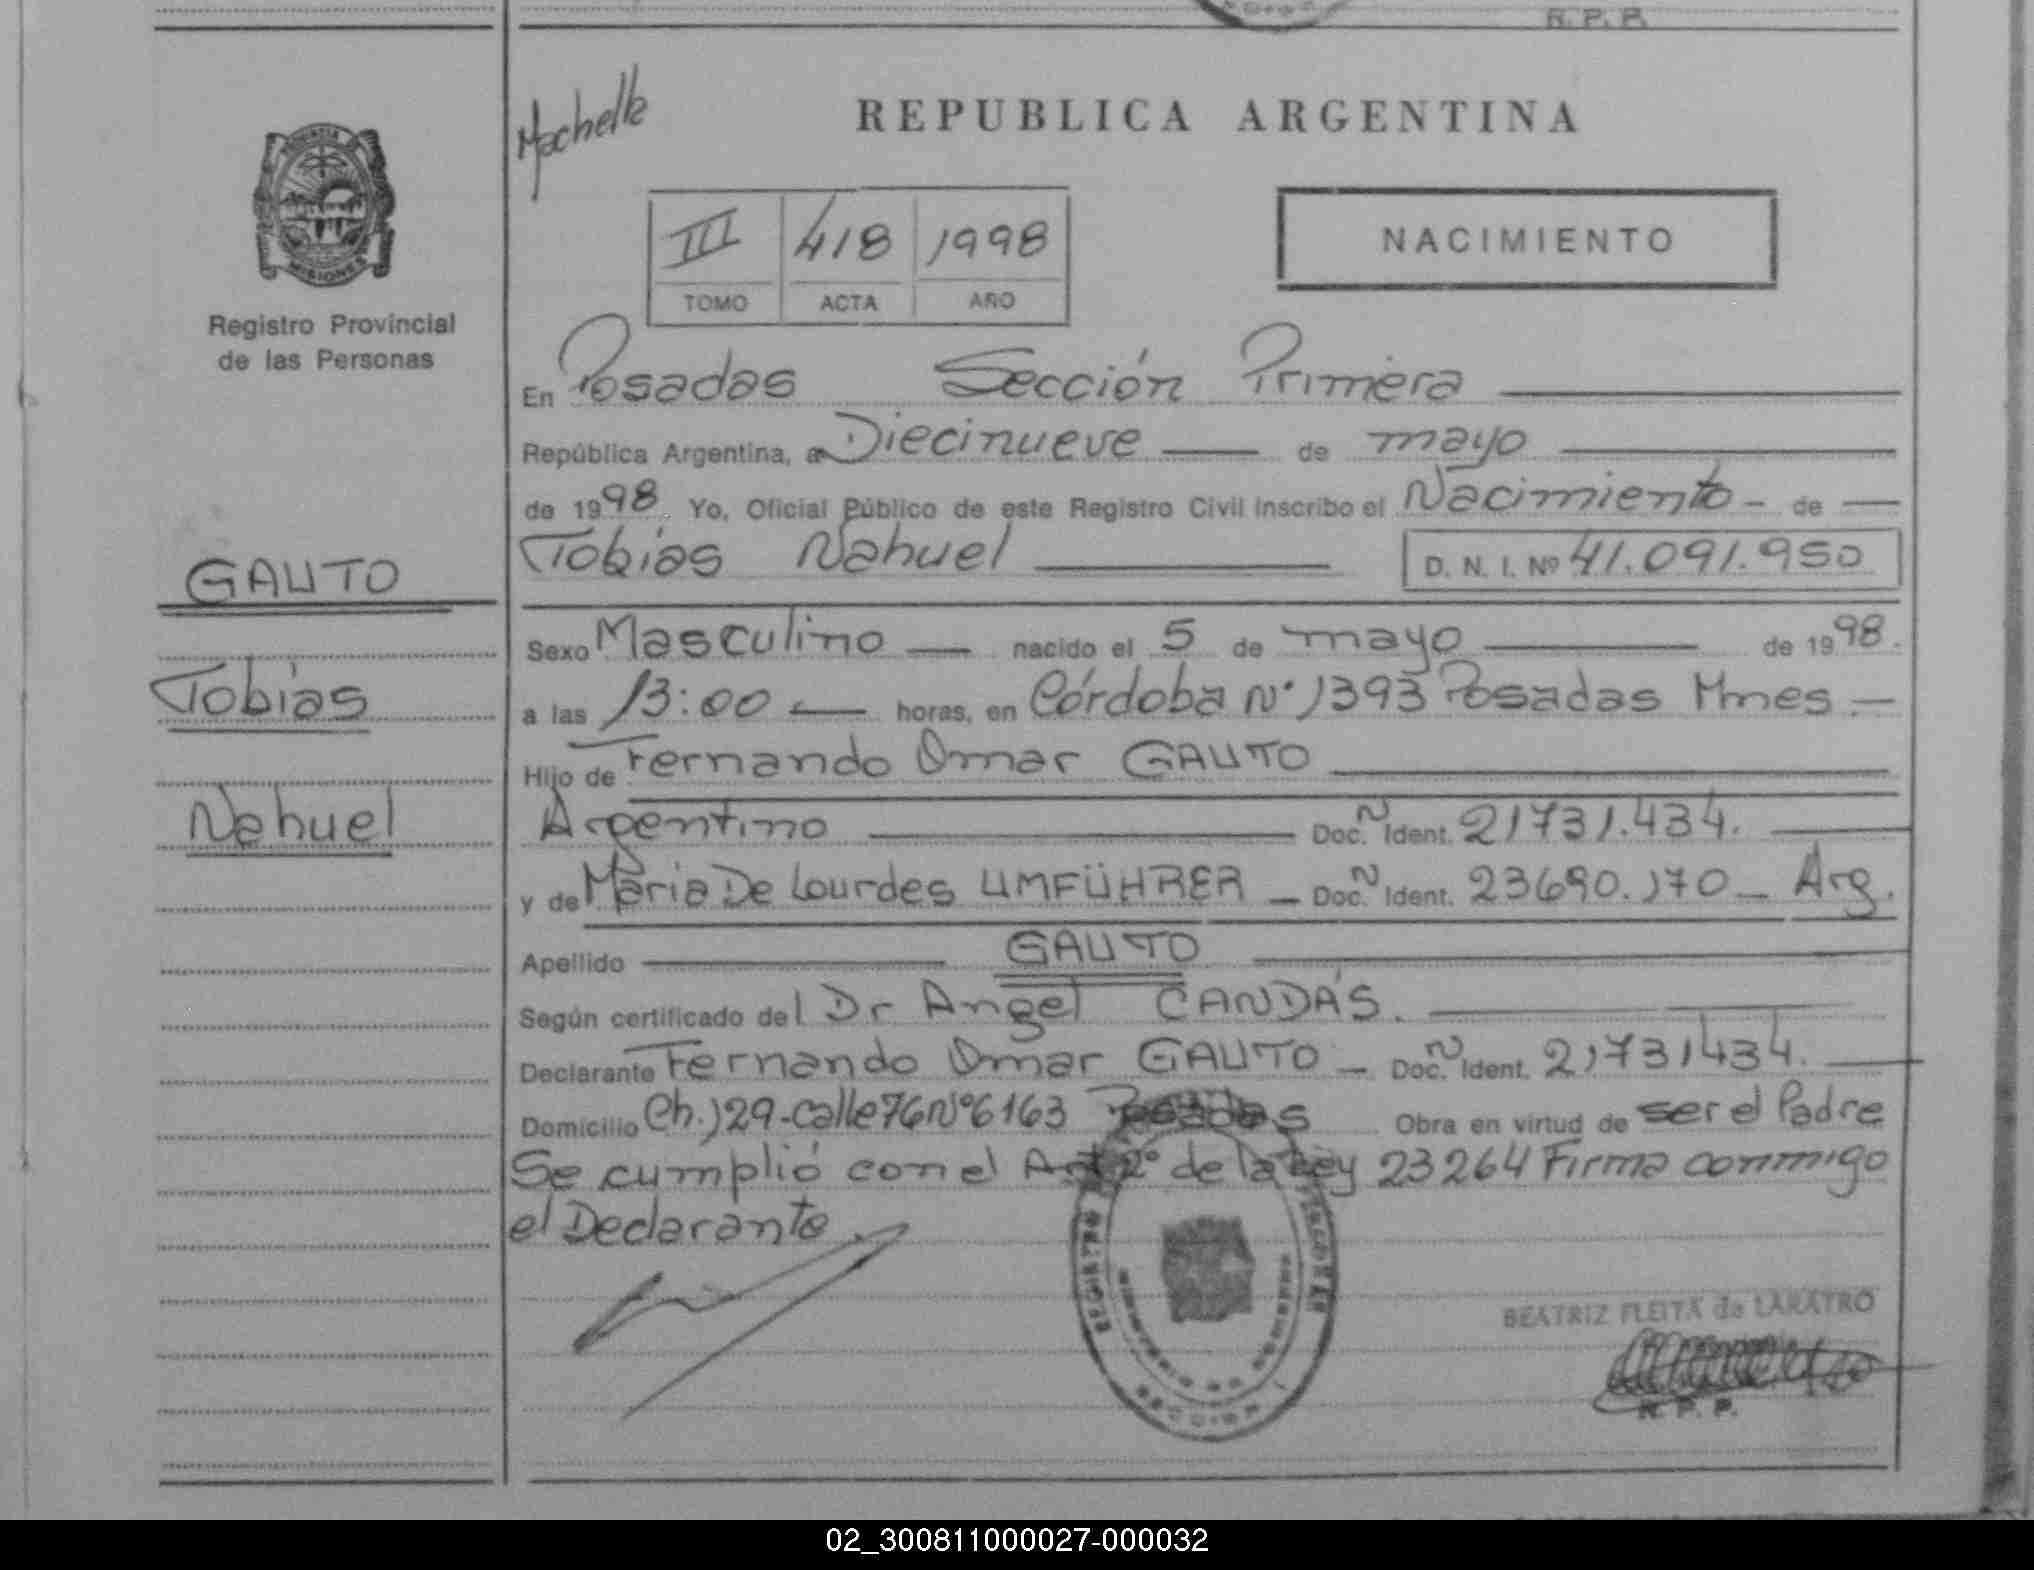 R. P. P.
REPUBLICA ARGENTINA
MISIONES
III 418 1998
TOMO ACTA AÑO
NACIMIENTO
Registro Provincial
de las Personas
En Posadas Sección Primera
República Argentina, a Diecinueve de mayo
de 1998. Yo, Oficial Público de este Registro Civil inscribo el Nacimiento - de
Tobías Nahuel D. N. I. Nº 41.091.950
GAUTO
Tobías
Nahuel
Sexo Masculino nacido el 5 de mayo de 1998.
a las 13:00 horas, en Córdoba Nº 1393 Posadas Mnes.-
Hijo de Fernando Omar GAUTO
Argentino Doc. N Ident. 21731.434.
y de María De Lourdes UMFÜHRER - Doc. N Ident. 23690.170 - Arg.
Apellido GAUTO
Según certificado del Dr Angel CANDÁS.
Declarante Fernando Omar GAUTO - Doc. N Ident. 21731434.
Domicilio Ch.129-calle 76 Nº 6163 Posadas Obra en virtud de ser el Padre
Se cumplió con el Art 2º de la Ley 23264 Firma conmigo
el Declarante
BEATRIZ FLEITA de LARATRO
R. P. P.
SECCION
02_300811000027-000032